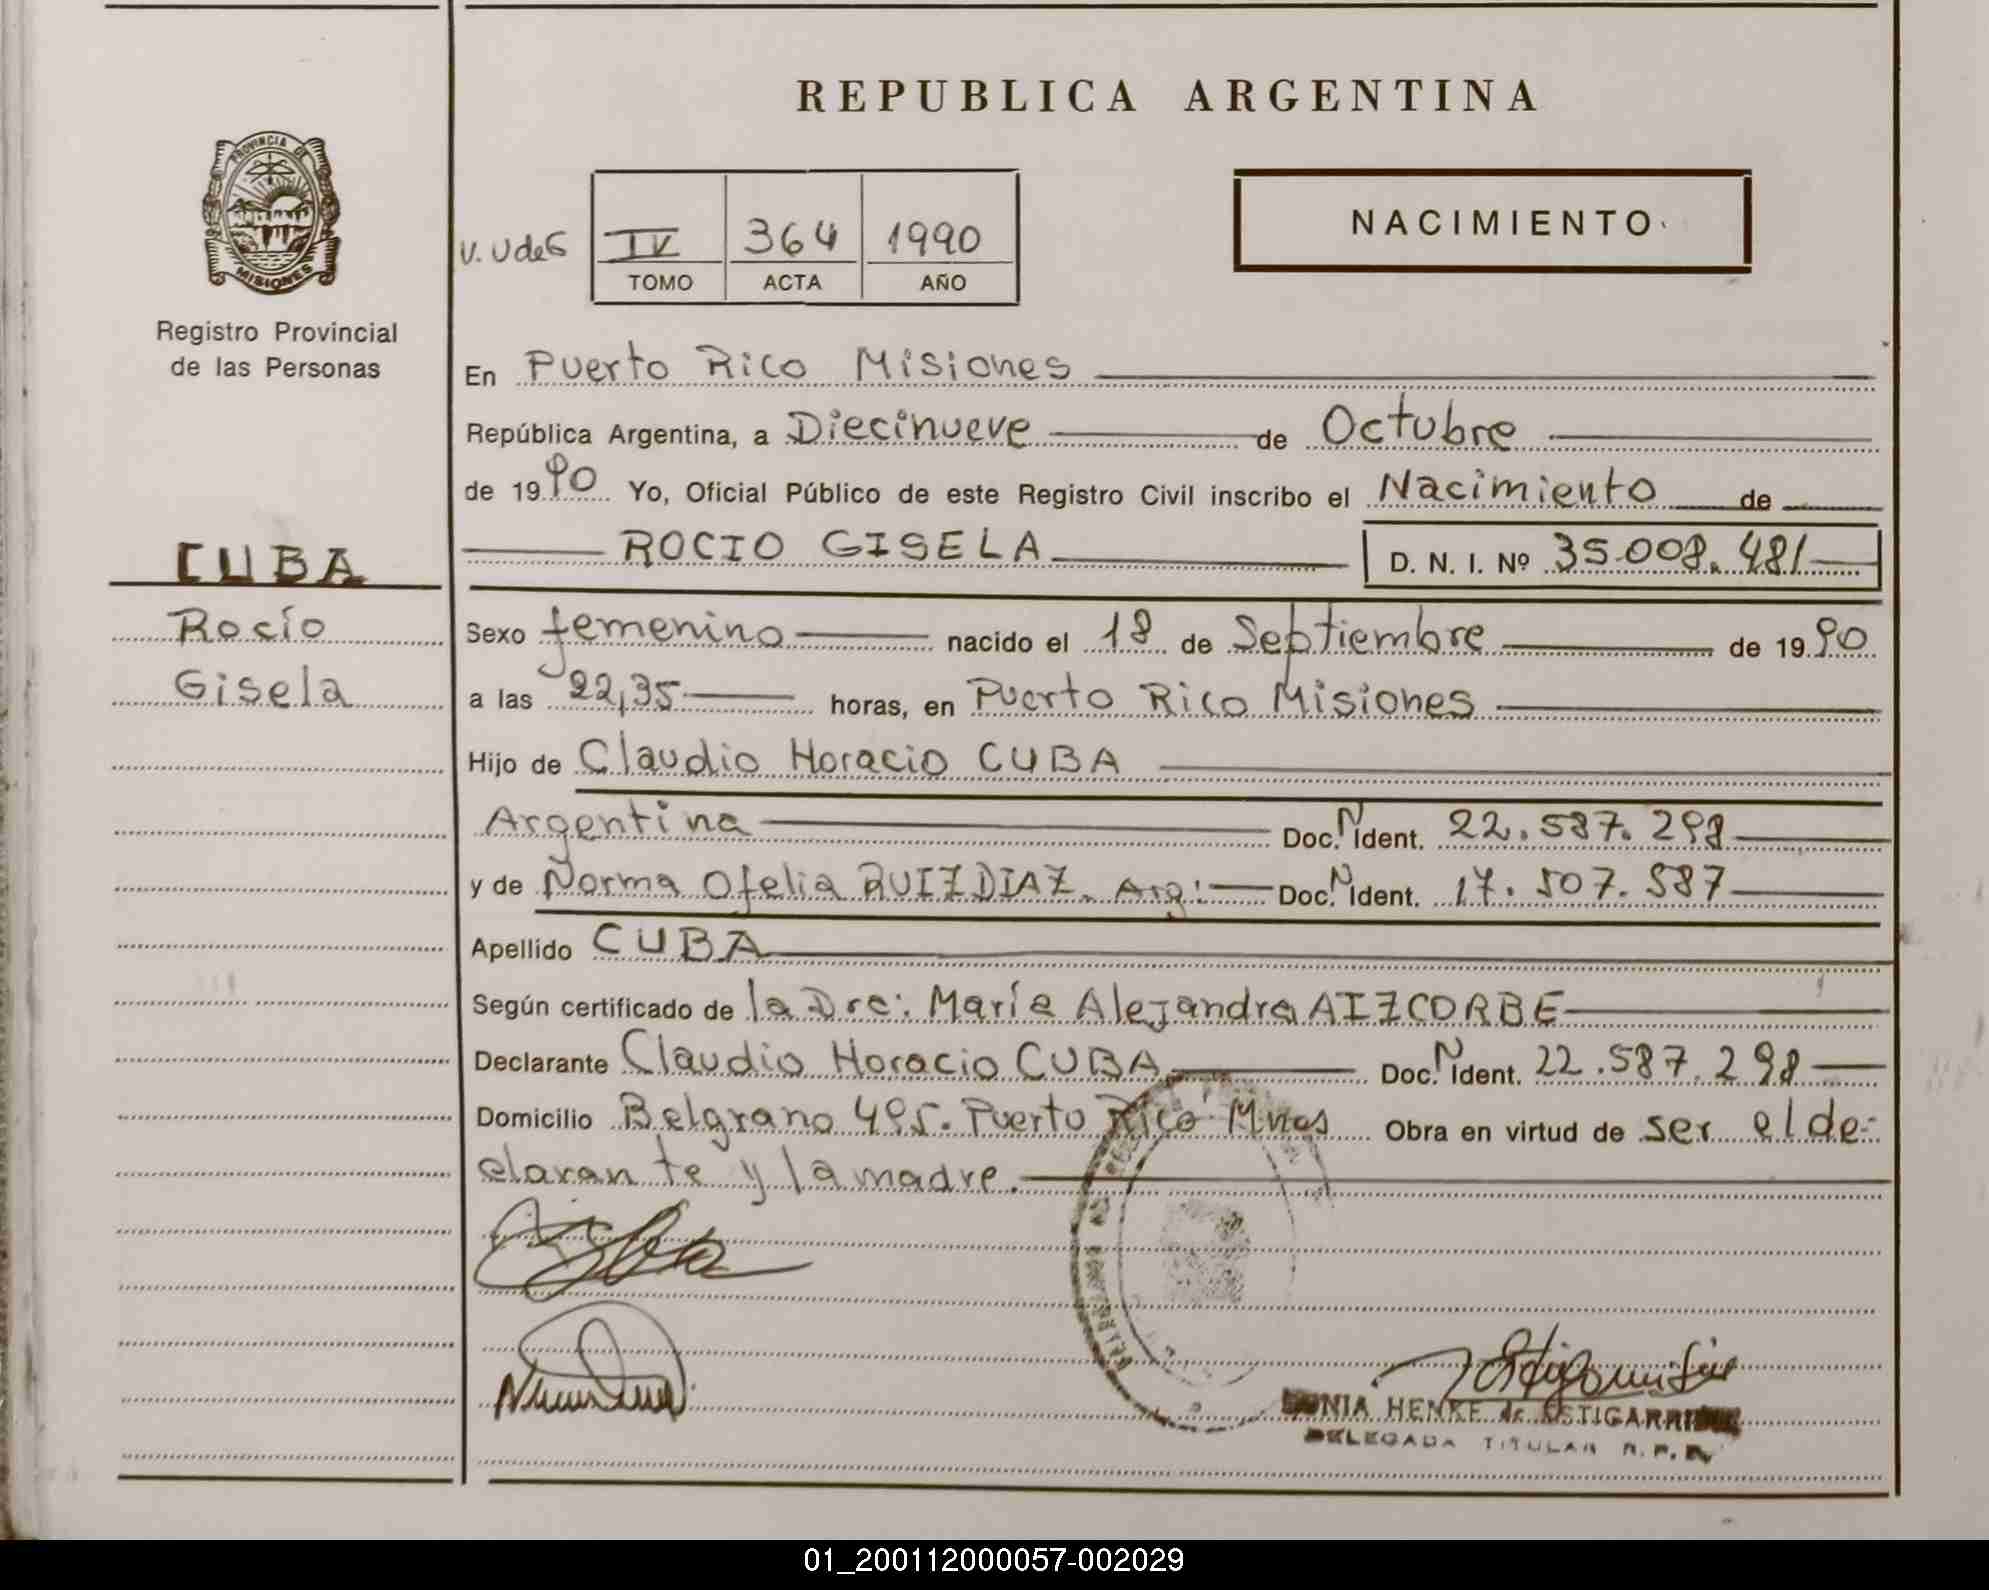 REPUBLICA ARGENTINA
PROVINCIA DE
MISIONES
Registro Provincial
de las Personas
NACIMIENTO
V. UdeG
IV 364 1990
TOMO ACTA AÑO
En Puerto Rico Misiones
República Argentina, a Diecinueve de Octubre
de 1990 Yo, Oficial Público de este Registro Civil inscribo el Nacimiento de
ROCIO GISELA D. N. I. Nº 35.008.481
CUBA
Rocío
Gisela
Sexo femenino nacido el 18 de Septiembre de 1990
a las 22,35 horas, en Puerto Rico Misiones
Hijo de Claudio Horacio CUBA
Argentina Doc. N Ident. 22.587.298
y de Norma Ofelia RUIZ DIAZ. Arg: Doc. N Ident. 17.507.587
Apellido CUBA
Según certificado de la Dra: María Alejandra AIZCORBE
Declarante Claudio Horacio CUBA Doc. N Ident. 22.587.298
Domicilio Belgrano 495. Puerto Rico Mnes Obra en virtud de ser el de-
clarante y la madre.
SONIA HENKE de ESTIGARRIBIA
DELEGADA TITULAR R. P. P.
01_200112000057-002029